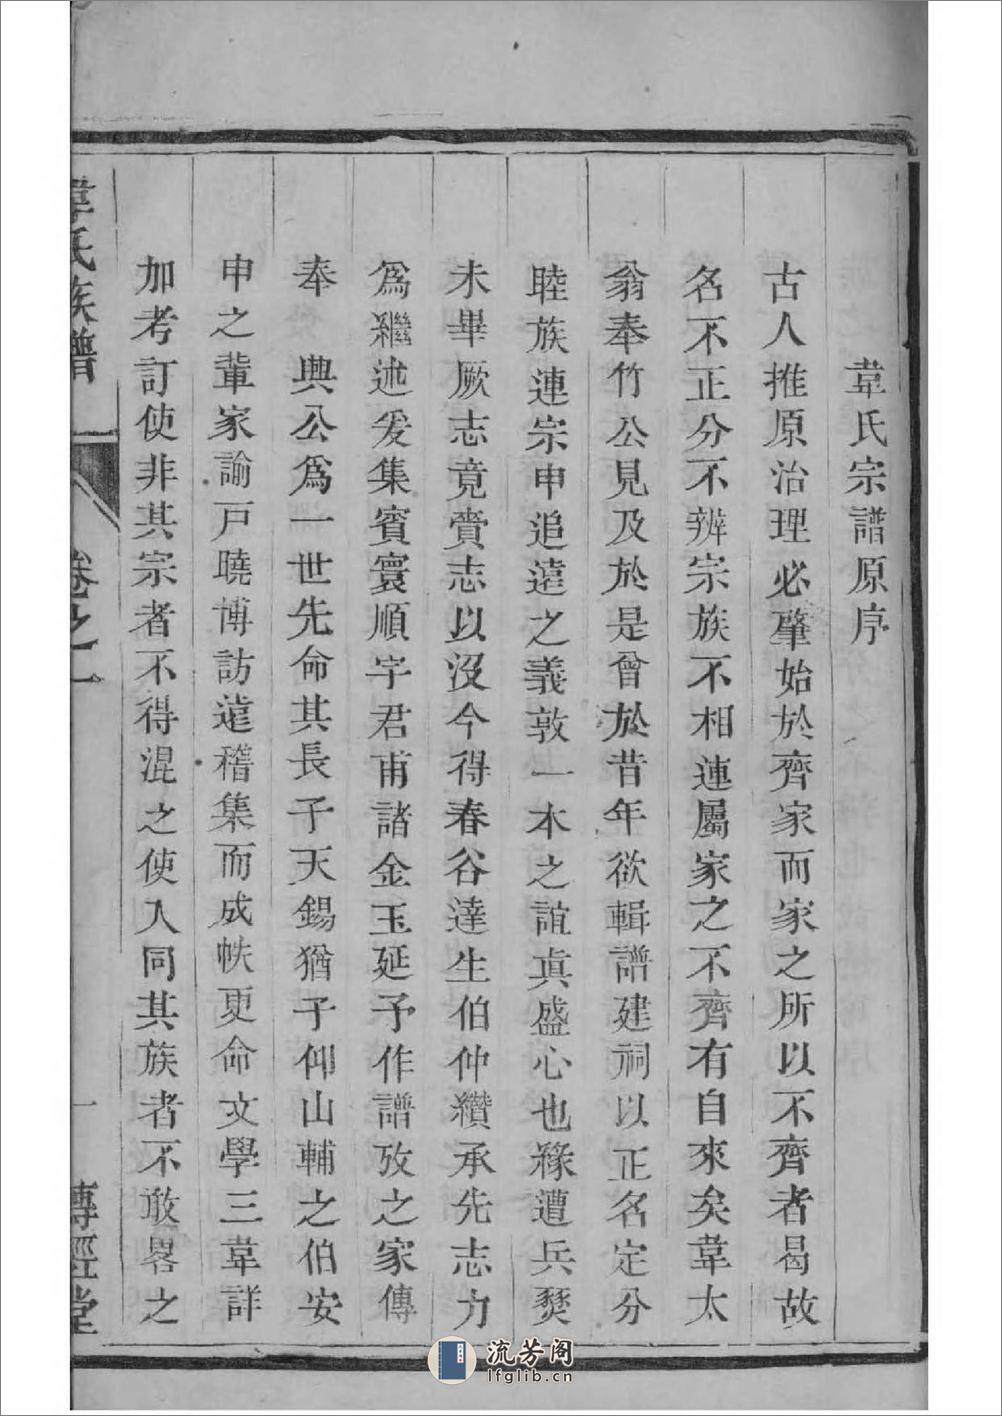 韋氏宗譜原序
古人推原治理必肇始於齊家而家之所以不齊者曷故
名不正分不辨宗族不相連屬家之不齊有自來矣韋太
翁奉竹公見及於是曾於昔年欲輯譜建祠以正名定分
睦族連宗申追遠之義敦一本之誼眞盛心也緣遭兵燹
未畢厥志竟賫志以沒今得春谷達生伯仲纘承先志力
爲繼述爰集賓寰順宇君甫諸金玉延予作譜攷之家傳
奉　典公爲一世先命其長子天錫猶子仰山輔之伯安
申之輩家諭戸曉博訪遠稽集而成帙更命文學三韋詳
加考訂使非其宗者不得混之使入同其族者不敢畧之
韋氏族譜
卷之一
一
傳經堂
流芳阁
lfglib.cn